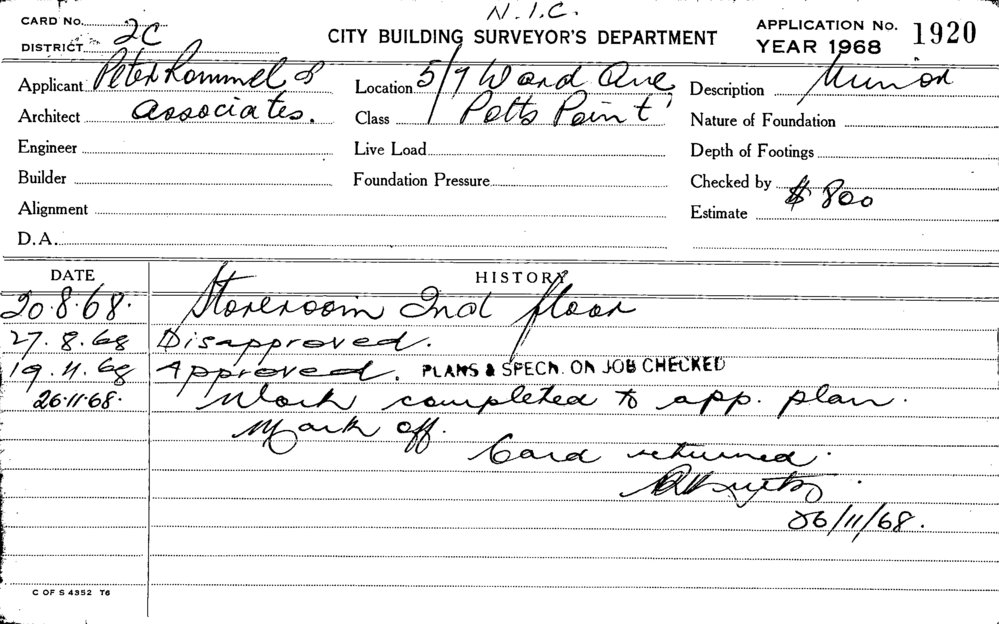 N.I.C.
CARD No.
DISTRICT 2C
CITY BUILDING SURVEYOR'S DEPARTMENT
APPLICATION No. 1920
YEAR 1968
Applicant Peter Rommel &
Architect Associates.
Engineer
Builder
Alignment
D.A.
Location 5/7 Ward Ave
Class Potts Point
Live Load
Foundation Pressure
Description Minor
Nature of Foundation
Depth of Footings
Checked by
Estimate $ 800
DATE HISTORY
20.8.68. Storeroom 2nd floor
27.8.68 Disapproved.
19.11.68 Approved. PLANS & SPECN. ON JOB CHECKED
26.11.68. Work completed to app. plan.
Mark off.
Card returned.
26/11/68.
C OF S 4352 T6